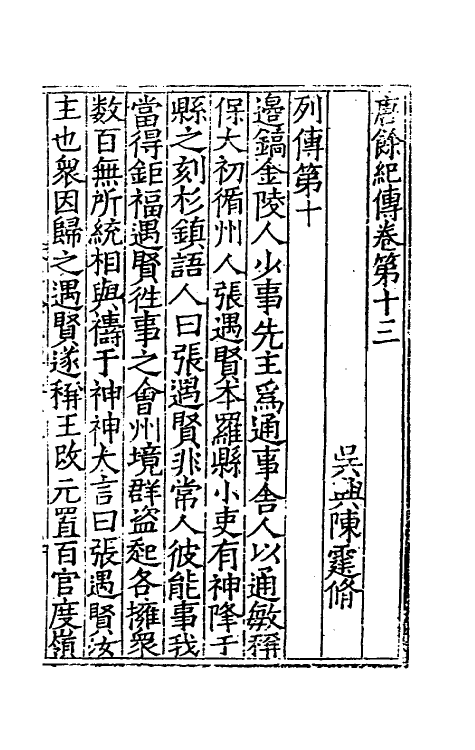 唐餘紀傳卷第十三
吳興陳霆脩
列傳第十
邊鎬金陵人少事先主爲通事舍人以通敏稱
保大初循州人張遇賢本羅縣小吏有神降于
縣之刻杉鎮語人曰張遇賢非常人彼能事我
當得鉅福遇賢徃事之會州境群盗起各擁衆
数百無所統相與禱于神神大言曰張遇賢汝
主也衆因歸之遇賢遂稱王改元置百官度嶺